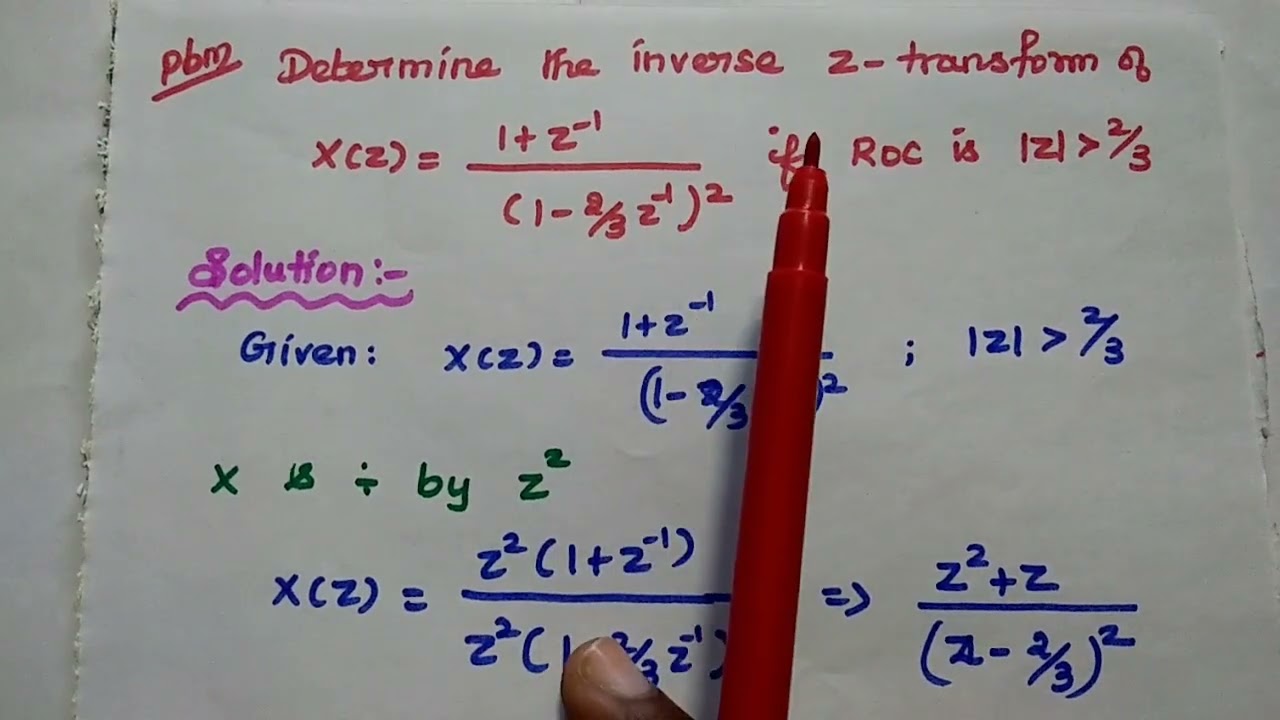 pbm Determine the inverse z-transform of
X(z) = 1 + z⁻¹ / (1 - 2/3 z⁻¹)² if ROC is |z| > 2/3
Solution:-
Given: X(z) = 1 + z⁻¹ / (1 - 2/3 )² ; |z| > 2/3
X is ÷ by z²
X(z) = z²(1 + z⁻¹) / z²(1 2/3 z⁻¹) => z² + z / (z - 2/3)²